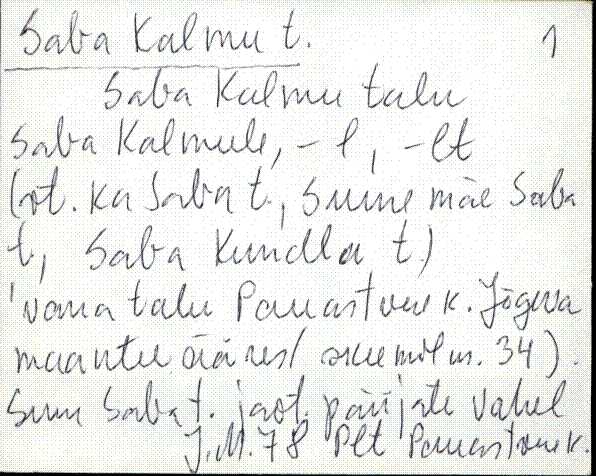 Saba Kalmu t. 1
Saba Kalmu talu
Saba Kalmule, -l, -lt
(vt. ka Saba t., Suure mäe Saba
t., Saba Kundla t.)
'vana talu Panastvere k. Jõgeva
maantee ääres (skeemil nr. 34).
Suur Saba t. jaot. pärijate vahel
J.M.78 Plt Panastvere k.